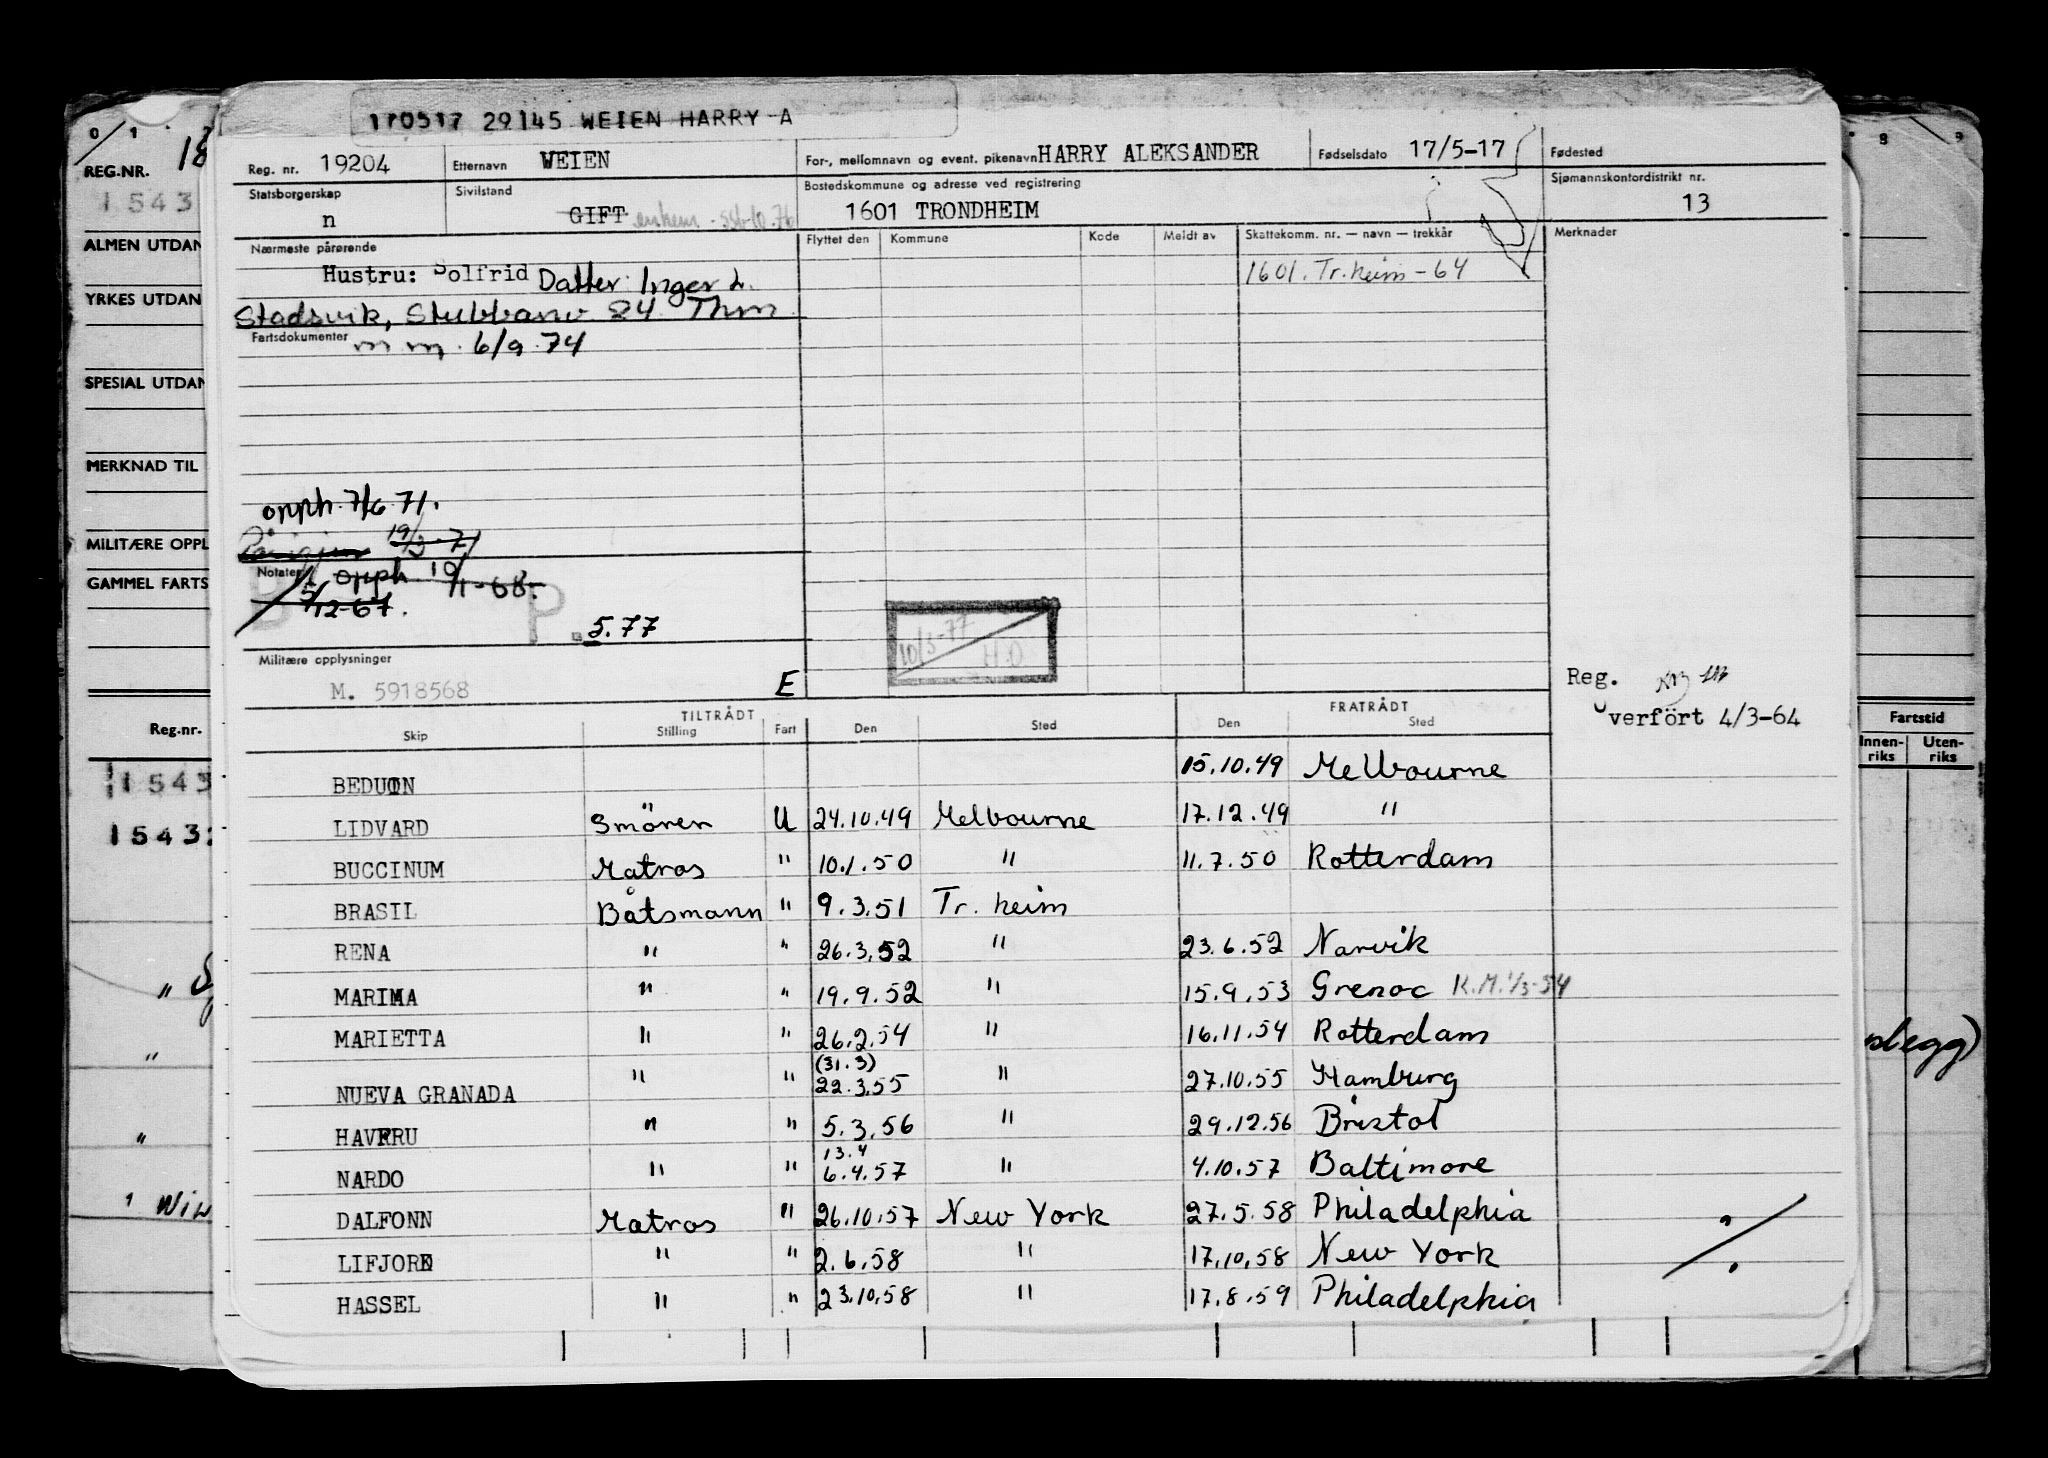 170517 29145 WEIEN HARRY A
Reg. nr. 19204 Etternavn WEIEN For-, mellomnavn og event. pikenavn HARRY ALEKSANDER Fødselsdato 17/5-17 Fødested
Statsborgerskap n Sivilstand GIFT Bostedskommune og adresse ved registrering 1601 TRONDHEIM Sjømannskontordistrikt nr. 13
Nærmeste pårørende Flyttet den Kommune Kode Meldt av Skattekomm. nr. — navn — trekkår Merknader
Hustru: Solfrid Datter: Inger L. 1601. Tr.heim - 64
Stadsvik, Stubbanv 24 Thm
Fartsdokumenter m m. 6/9 74
opph. 7/6 71.
19/3-71
Notater opph 10/1-68.
5/12-67.
P. 5.77
10/3-77 H.O
Militære opplysninger
M. 5918568 E
Reg.
Overført 4/3-64
TILTRÅDT FRATRÅDT
Skip Stilling Fart Den Sted Den Sted
BEDUIN 15.10.49 Melbourne
LIDVARD Smörer U 24.10.49 Melbourne 17.12.49 "
BUCCINUM Matros " 10.1.50 " 11.7.50 Rotterdam
BRASIL Båtsmann " 9.3.51 Tr. heim
RENA " " 26.3.52 " 23.6.52 Narvik
MARIMA " " 19.9.52 " 15.9.53 Grenoc K.M. 1/3-54
MARIETTA " " 26.2.54 " 16.11.54 Rotterdam
NUEVA GRANADA " " (31.3) 22.3.55 " 27.10.55 Hamburg
HAVFRU " " 5.3.56 " 29.12.56 Bristol
NARDO " " 13.4 6.4.57 " 4.10.57 Baltimore
DALFONN Matros " 26.10.57 New York 27.5.58 Philadelphia
LIFJORD " " 2.6.58 " 17.10.58 New York
HASSEL " " 23.10.58 " 17.8.59 Philadelphia
0 1
REG.NR. 18
1543
ALMEN UTDAN
YRKES UTDAN
SPESIAL UTDAN
MERKNAD TIL
MILITÆRE OPPL
GAMMEL FARTS
Reg.nr.
1543
1543
8 9
Fartstid
Innen-riks Uten-riks